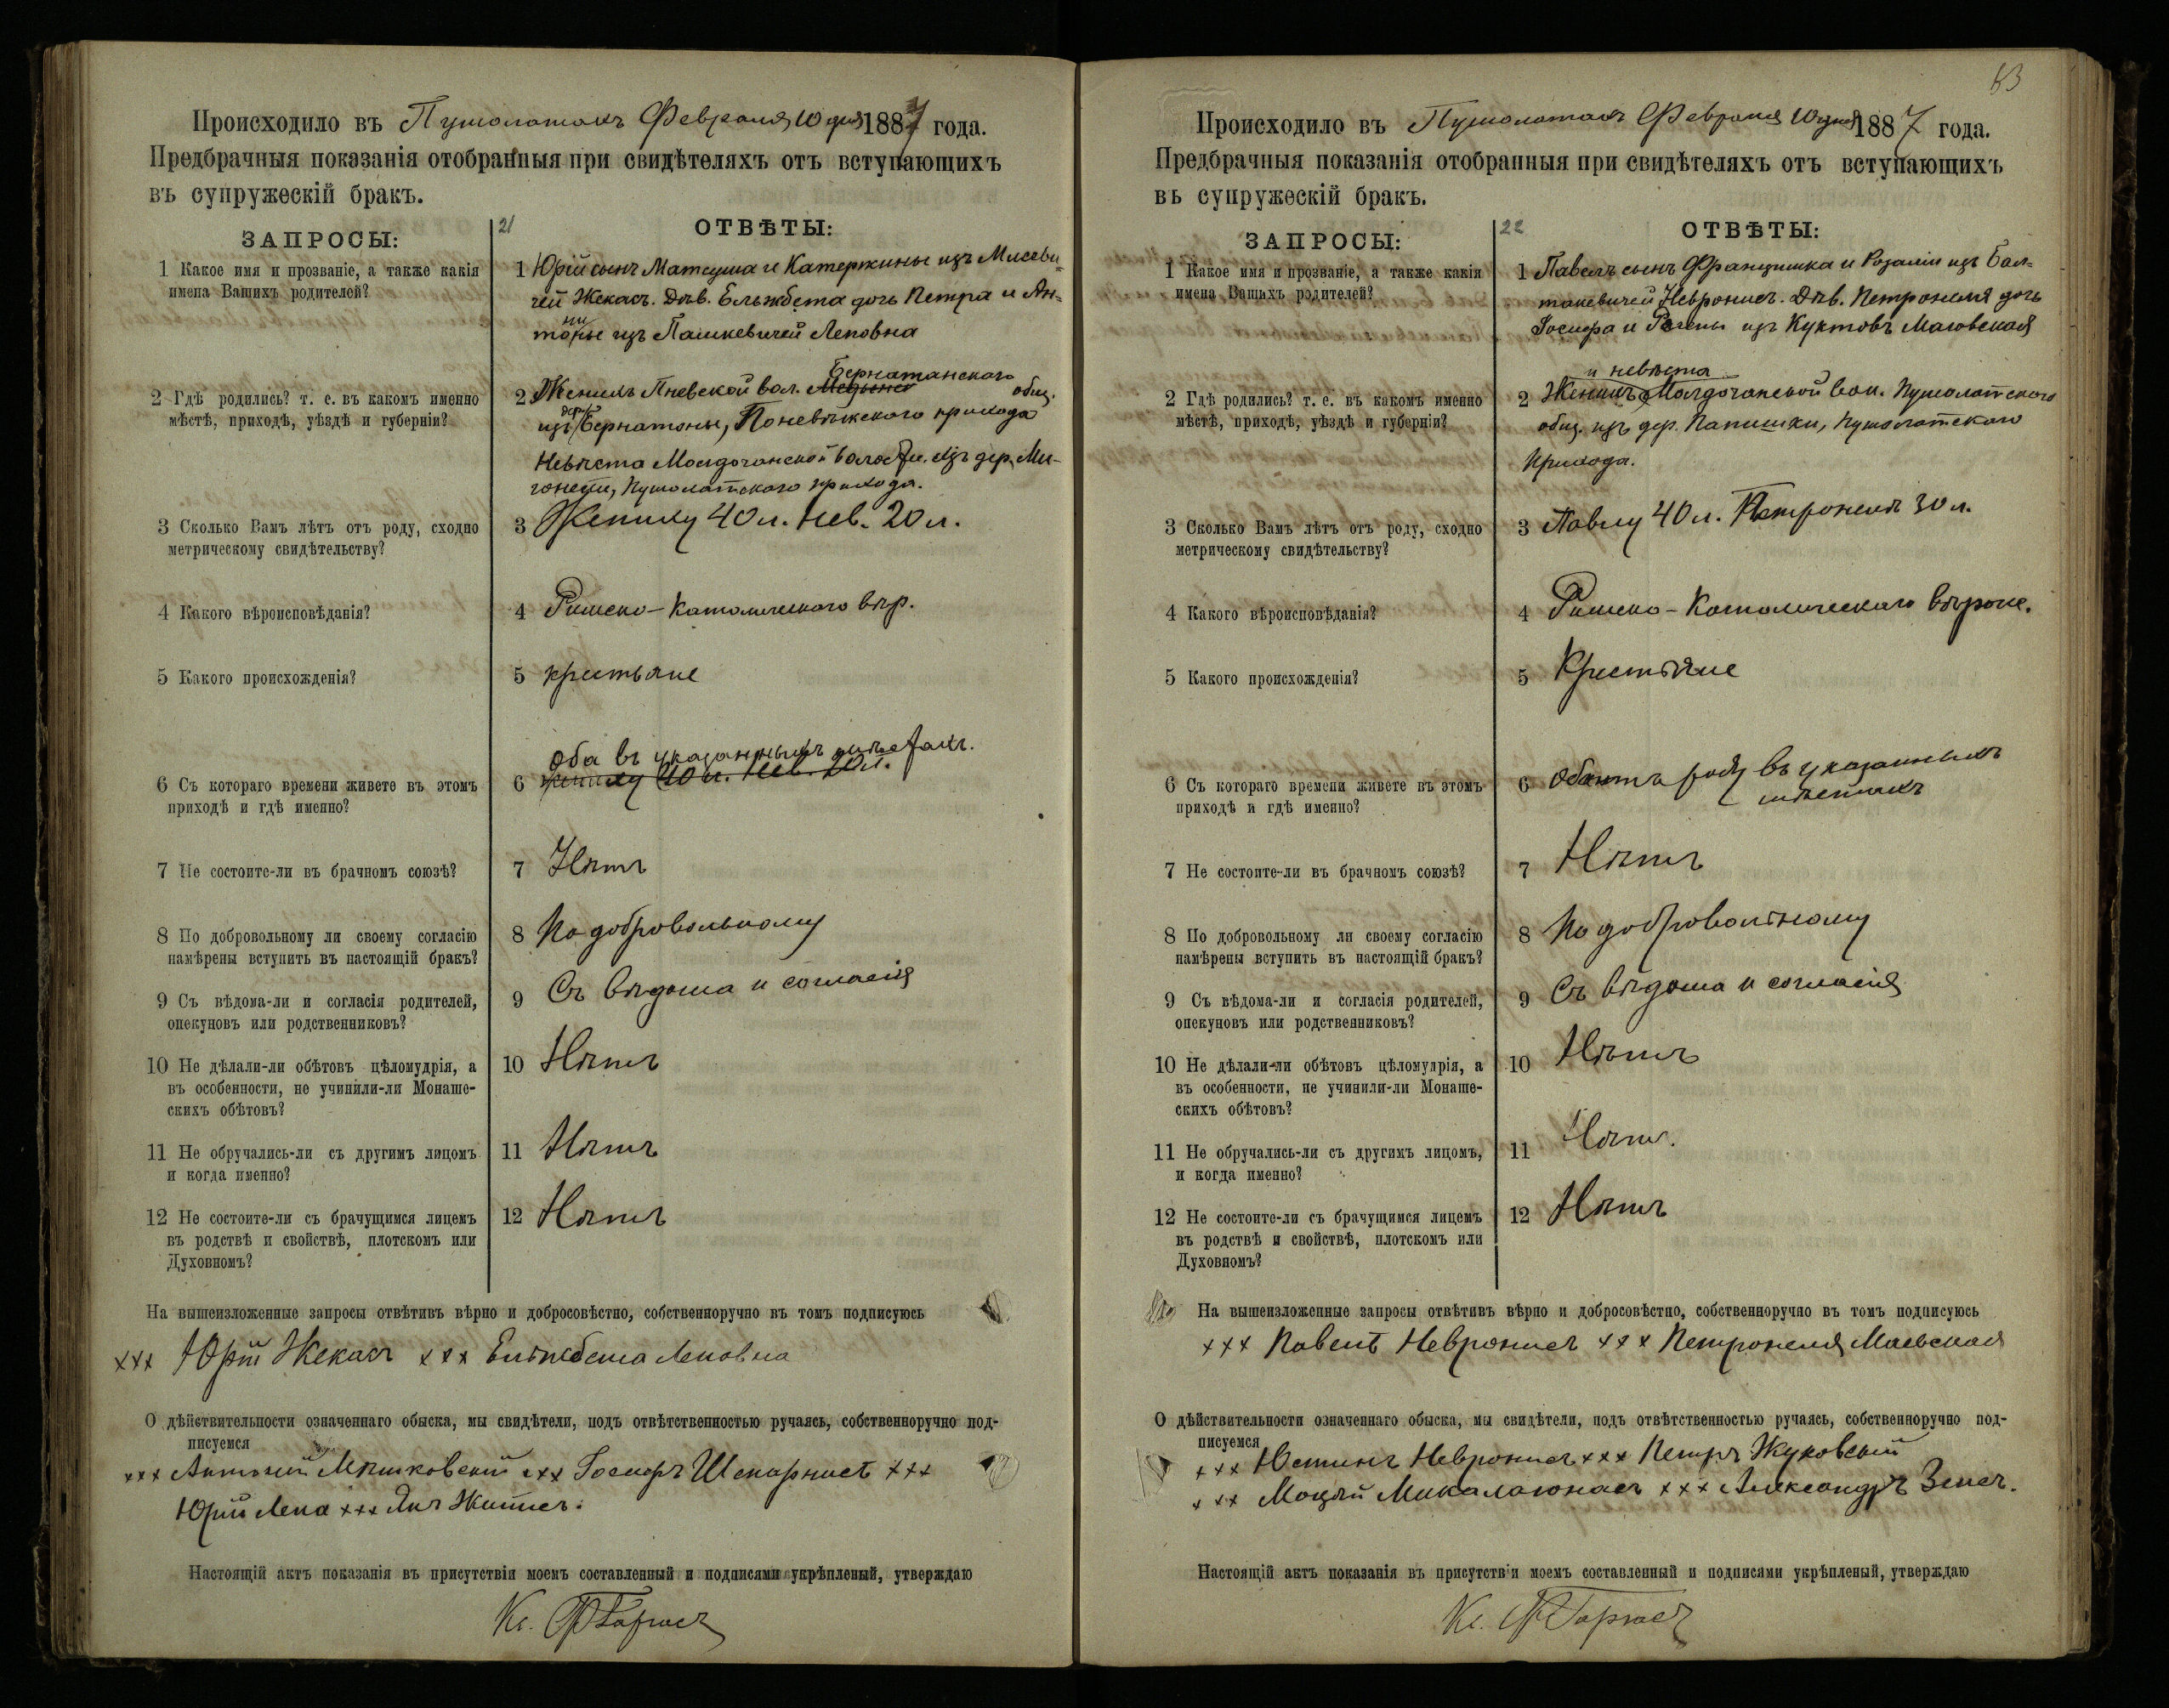 Происходило въ Пушолатахъ Февраля 10 дня 1887 года.
Предбрачныя показанія отобранныя при свидѣтеляхъ отъ вступающихъ
въ супружескій бракъ.
21
ЗАПРОСЫ:
ОТВѢТЫ:
1 Какое имя и прозваніе, а также какія
имена Вашихъ родителей?
1 Юрій сынъ Матеуша и Катержины изъ Мисеви-
чей Жекасъ. Дѣв. Ельжбета дочь Петра и Ан-
тонины изъ Пашкевичей Леповна
2 Гдѣ родились? т. е. въ какомъ именно
мѣстѣ, приходѣ, уѣздѣ и губерніи?
Бернатанского
2 Женихъ Пневской вол. общ.
изъ дер. Бернатоны, Поневѣжского прихода
Невѣста Молдочанской волости. изъ дер. Ми-
Пушолатского прихода.
3 Сколько Вамъ лѣтъ отъ роду, сходно
метрическому свидѣтельству?
3 Жениху 40 л. Нев. 20 л.
4 Какого вѣроисповѣданія?
4 Римско-Католическаго вѣр.
5 Какого происхожденія?
5 крестьяне
6 Съ котораго времени живете въ этомъ
приходѣ и гдѣ именно?
Оба въ указанныхъ мѣстахъ.
6 жениху 40 л. Нев. 20 л.
7 Не состоите-ли въ брачномъ союзѣ?
7 Нѣтъ
8 По добровольному ли своему согласію
намѣрены вступить въ настоящій бракъ?
8 По добровольному
9 Съ вѣдома-ли и согласія родителей,
опекуновъ или родственниковъ?
9 Съ вѣдома и согласія
10 Не дѣлали-ли обѣтовъ цѣломудрія, а
въ особенности, не учинили-ли Монаше-
скихъ обѣтовъ?
10 Нѣтъ
11 Не обручались-ли съ другимъ лицомъ
и когда именно?
11 Нѣтъ
12 Не состоите-ли съ брачущимся лицемъ
въ родствѣ и свойствѣ, плотскомъ или
Духовномъ?
12 Нѣтъ
На вышеизложенные запросы отвѣтивъ вѣрно и добросовѣстно, собственноручно въ томъ подписуюсь
ххх Юрій Жекасъ ххх Ельжбета Леповна
О дѣйствительности означеннаго обыска, мы свидѣтели, подъ отвѣтственностью ручаясь, собственноручно под-
писуемся
ххх Антоній Мѣшковскій ххх Іосифъ ххх
Юрій Лепа ххх Янъ
Настоящій актъ показанія въ присутствіи моемъ составленный и подписями укрѣпленый, утверждаю
Кс.
83
Происходило въ Пушолатахъ Февраля 10 дня 1887 года.
Предбрачныя показанія отобранныя при свидѣтеляхъ отъ вступающихъ
въ супружескій бракъ.
22
ЗАПРОСЫ:
ОТВѢТЫ:
1 Какое имя и прозваніе, а также какія
имена Вашихъ родителей?
1 Павелъ сынъ Францишка и Розаліи изъ Бал-
такевичей Невронисъ. Дѣв. Петронеля дочь
Іосифа и изъ Куктовъ Маовская
2 Гдѣ родились? т. е. въ какомъ именно
мѣстѣ, приходѣ, уѣздѣ и губерніи?
и невѣста
2 Женихъ Молдочанской вол. Пушолатского
общ. изъ дер. Папишки, Пушолатского
прихода.
3 Сколько Вамъ лѣтъ отъ роду, сходно
метрическому свидѣтельству?
3 Павлу 40 л. Петронелѣ 30 л.
4 Какого вѣроисповѣданія?
4 Римско-Католическаго вѣроис.
5 Какого происхожденія?
5 Крестьяне
6 Съ котораго времени живете въ этомъ
приходѣ и гдѣ именно?
6 Оба отъ роду въ указанныхъ
мѣстахъ
7 Не состоите-ли въ брачномъ союзѣ?
7 Нѣтъ
8 По добровольному ли своему согласію
намѣрены вступить въ настоящій бракъ?
8 По добровольному
9 Съ вѣдома-ли и согласія родителей,
опекуновъ или родственниковъ?
9 Съ вѣдома и согласія
10 Не дѣлали-ли обѣтовъ цѣломудрія, а
въ особенности, не учинили-ли Монаше-
скихъ обѣтовъ?
10 Нѣтъ
11 Не обручались-ли съ другимъ лицомъ,
и когда именно?
11 Нѣтъ.
12 Не состоите-ли съ брачущимся лицемъ
въ родствѣ и свойствѣ, плотскомъ или
Духовномъ?
12 Нѣтъ
На вышеизложенные запросы отвѣтивъ вѣрно и добросовѣстно, собственноручно въ томъ подписуюсь
ххх Павелъ Невронисъ ххх Петронеля Маевская
О дѣйствительности означеннаго обыска, мы свидѣтели, подъ отвѣтственностью ручаясь, собственноручно под-
писуемся
ххх Юстинъ Невронисъ ххх Петръ Жуковскій
ххх Моцѣй Микалаюнасъ ххх Александръ Зенсъ.
Настоящій актъ показанія въ присутствіи моемъ составленный и подписями укрѣпленый, утверждаю
Кс.